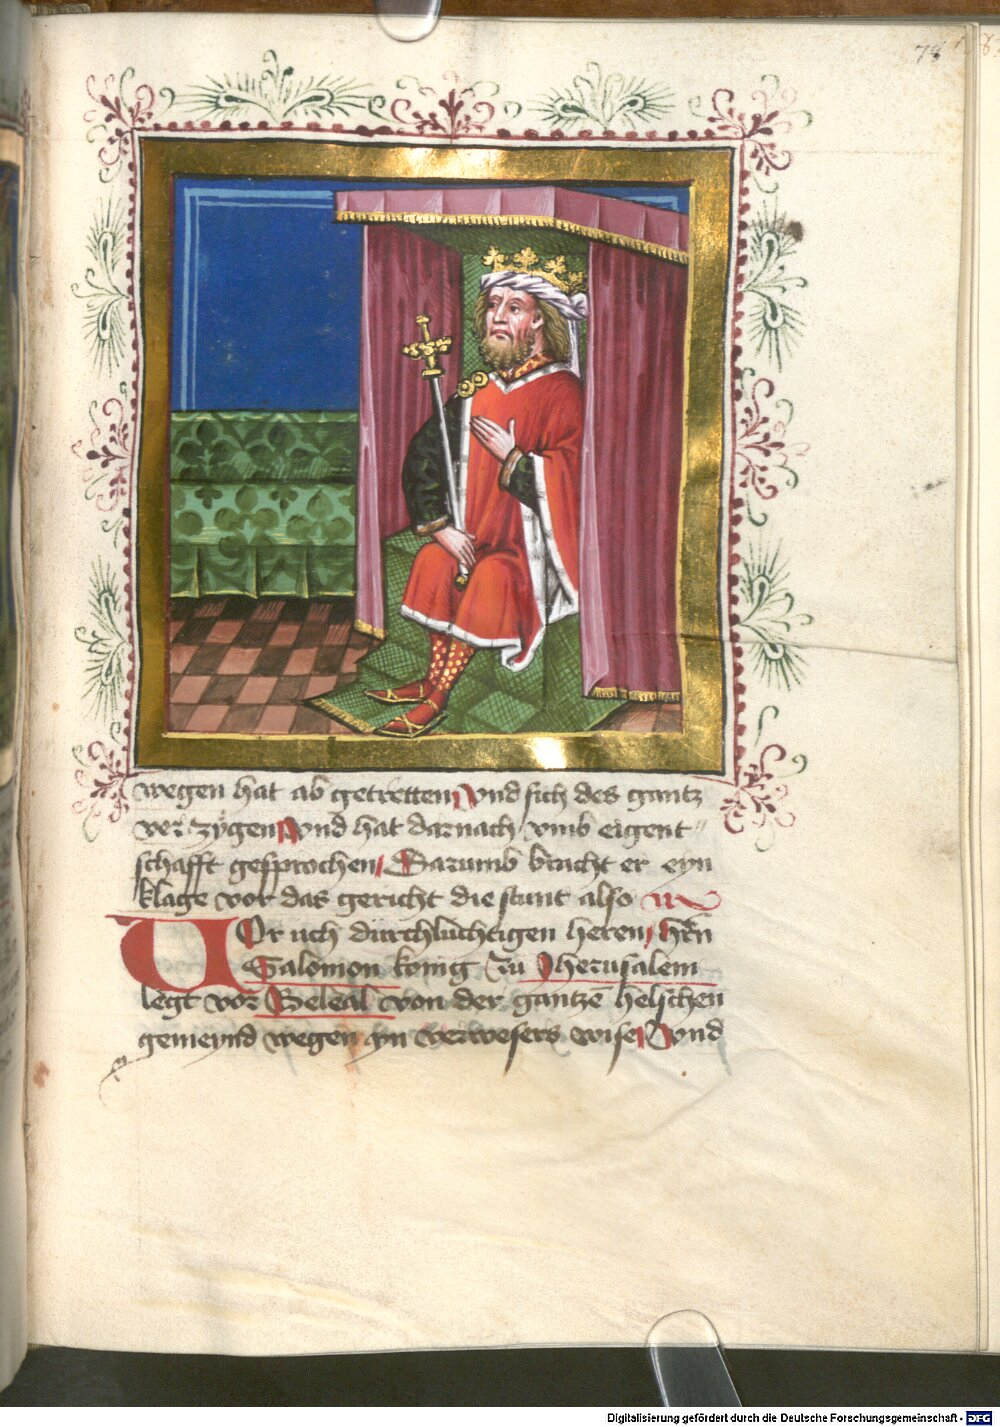 78
wegen hat ab getretten / vnd sich des gantz
ver zygen / vnd hat darnach vmb eigent"
schafft gesprochen / Darumb bracht er eyn
klage vor das gericht die stunt also
VOr uch durchluchtigen heren / hern
Salomon konig zu Jherusalem
legt vor Beleal von der gantze helschen
gemeynd wegen yn verwesers wise / vnd
Digitalisierung gefördert durch die Deutsche Forschungsgemeinschaft - DFG